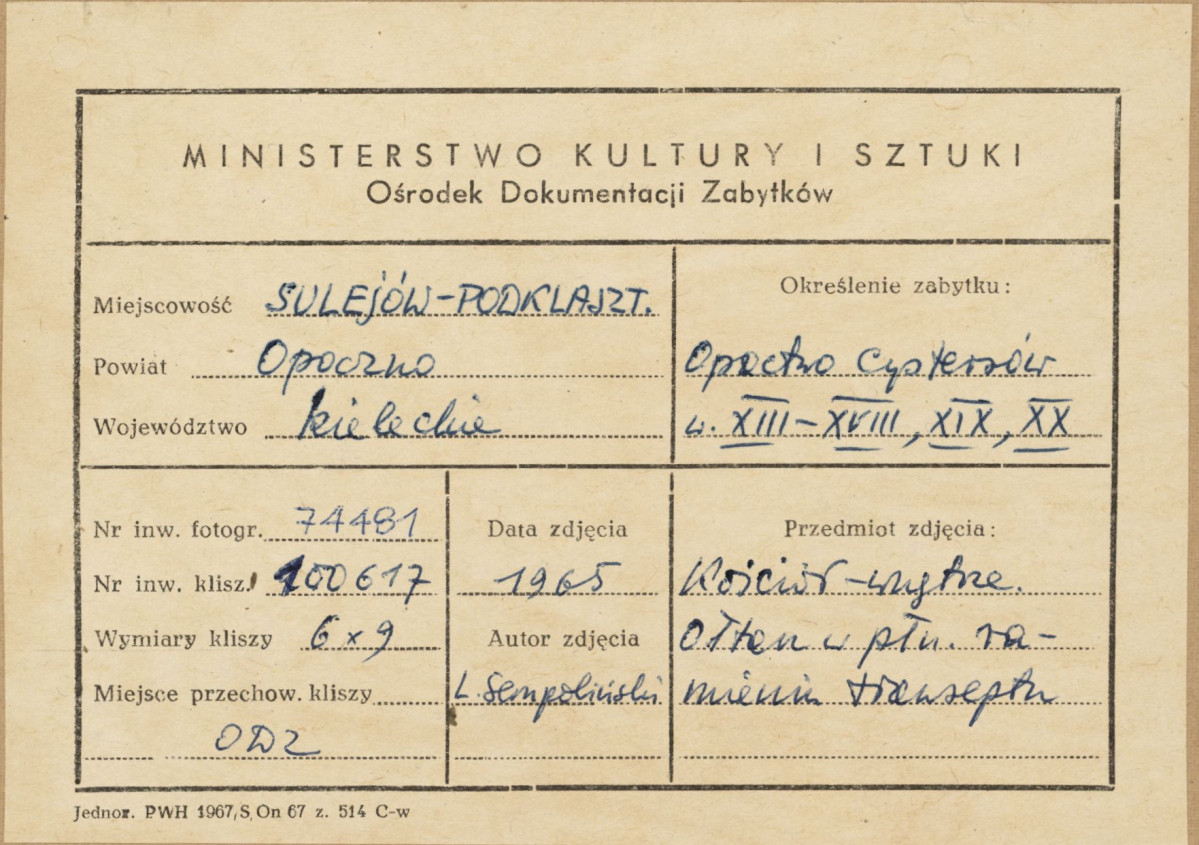 MINISTERSTWO KULTURY I SZTUKI
Ośrodek Dokumentacji Zabytków
Miejscowość SULEJÓW-PODKLASZT.
Powiat Opoczno
Województwo kieleckie
Określenie zabytku:
Opactwo Cystersów
w. XIII-XVIII, XIX, XX
Nr inw. fotogr. 74481
Nr inw. klisz. 100617
Wymiary kliszy 6x9
Miejsce przechow. kliszy
ODZ
Data zdjęcia
1965
Autor zdjęcia
L. Sempoliński
Przedmiot zdjęcia:
Kościół-wnętrze.
Ołtarz w płn. ra-
mieniu transeptu
Jednor. PWH 1967, S, On 67 z. 514 C-w